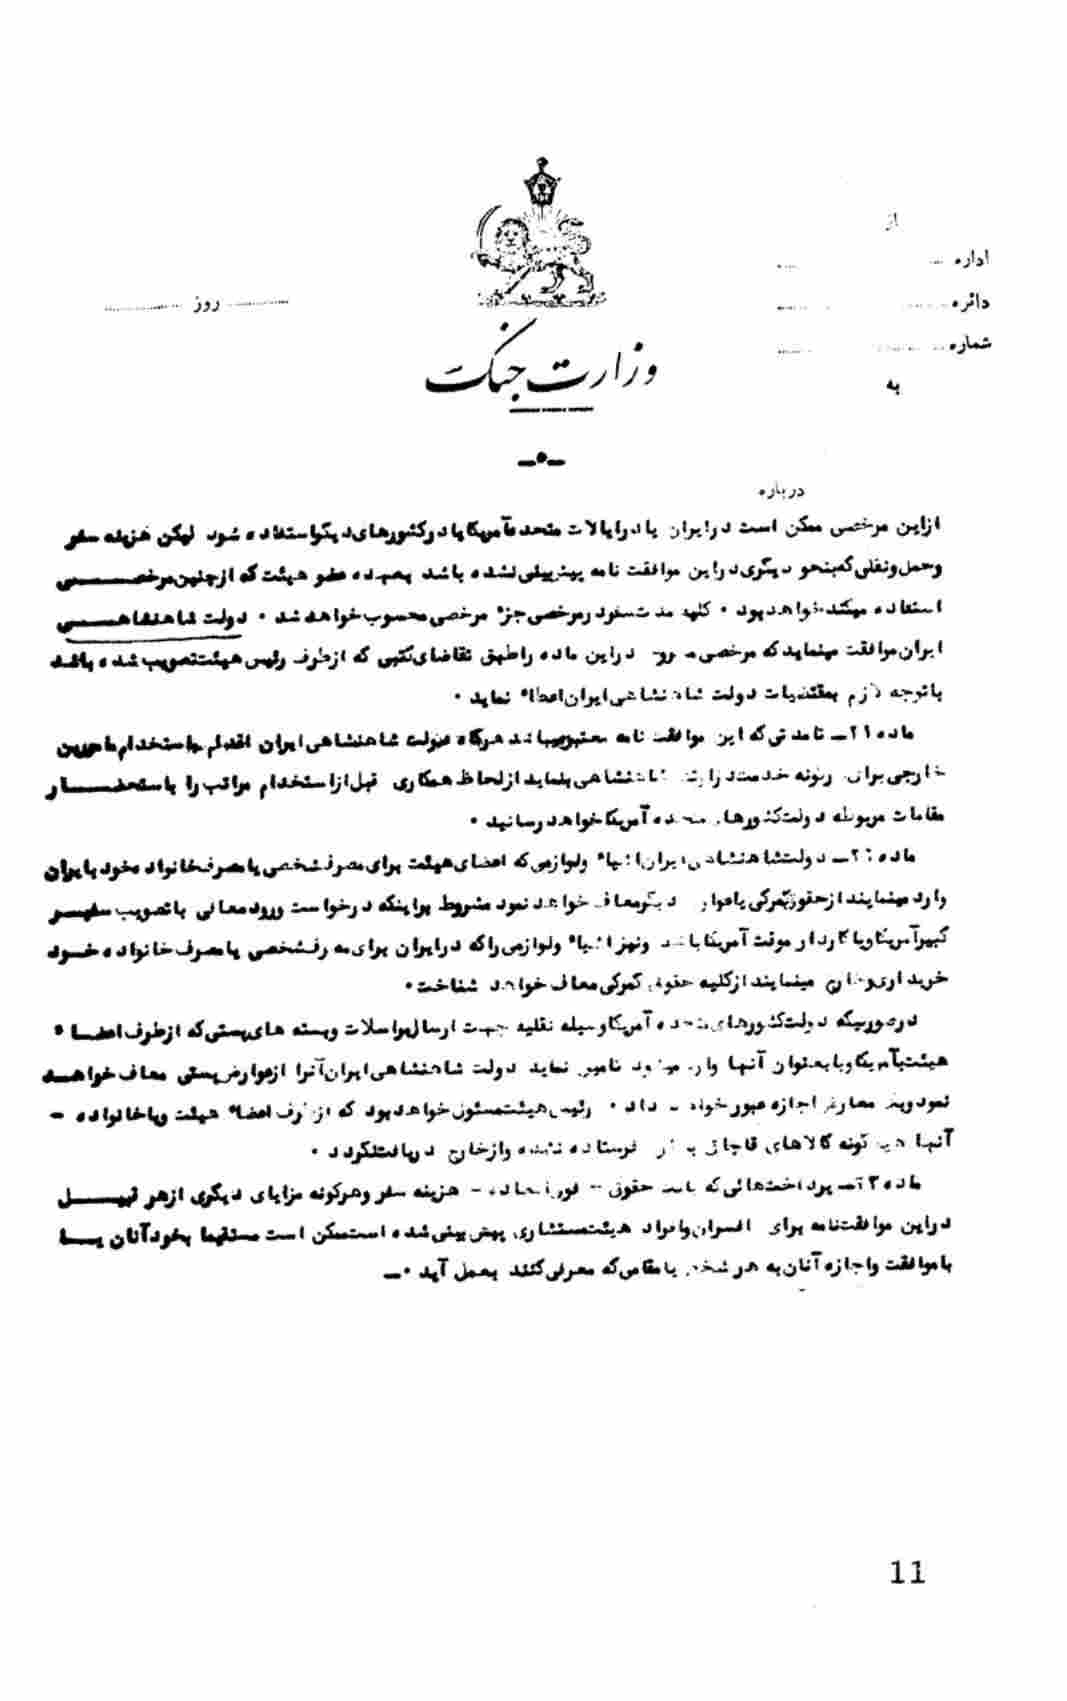 از
اداره
دائره
روز
شماره
وزارت جنگ
به
-۵-
درباره
ازاین مرخصی ممکن است درایران یا درایالات متحده آمریکا یا درکشورهای دیگر استفاده شود لیکن هزینه سفر
وحمل ونقلی که بنحو دیگری دراین موافقت نامه پیش بینی نشده باشد بعهده عضو هیئت که ازچنین مرخصی
استفاده میکند خواهد بود ۰ کلیه مدت سفر درمرخصی جزء مرخصی محسوب خواهد شد ۰ دولت شاهنشاهی
ایران موافقت مینماید که مرخصی دراین ماده راطبق تقاضای کتبی که ازطرف رئیس هیئت تصویب شده باشد
باتوجه لازم بمقتضیات دولت شاهنشاهی ایران اعطاء نماید ۰
ماده ۲۱ــ تامدتی که این موافقت نامه معتبر میباشد هرگاه دولت شاهنشاهی ایران اقدام باستخدام مامورین
خارجی برای خدمت شاهنشاهی بنماید ازلحاظ همکاری قبل ازاستخدام مراتب را باستحضار
مقامات مربوطه دولت کشورهای متحده آمریکا خواهد رسانید ۰
ماده ۲۲ــ دولت شاهنشاهی ایران اشیاء ولوازمی که اعضای هیئت برای مصرف شخصی یا مصرف خانواده خود بایران
وارد مینمایند ازحقوق گمرکی یا عوارض دیگر معاف خواهد نمود مشروط براینکه درخواست ورود معافی باتصویب سفیر
کبیر آمریکا ویا کاردار موقت آمریکا باشد ونیز اشیاء ولوازمی راکه درایران برای مصرف شخصی یا مصرف خانواده خود
خریداری وخارج مینمایند ازکلیه حقوق گمرکی معاف خواهد شناخت ۰
درصورتیکه دولت کشورهای متحده آمریکا وسیله نقلیه جهت ارسال مراسلات وبسته های پستی که ازطرف اعضاء
هیئت بآمریکا ویا بعنوان آنها وارد میشود تامین نماید دولت شاهنشاهی ایران آنرا ازعوارض پستی معاف خواهد
نمود اجازه عبور خواهد داد ۰ رئیس هیئت مسئول خواهد بود که ازطرف اعضاء هیئت ویا خانواده -
آنها هیچگونه کالاهای قاچاق فرستاده نشده وازخارج دریافت نگردد ۰
ماده ۲۳ــ پرداخت هائی که بابت حقوق - فوق العاده - هزینه سفر وهرگونه مزایای دیگری ازهر قبیل
دراین موافقت نامه برای افسران وافراد هیئت مستشاری پیش بینی شده است ممکن است مستقیما بخود آنان یا
باموافقت واجازه آنان به هر شخص یا مقامی که معرفی کنند بعمل آید ۰ــ
11